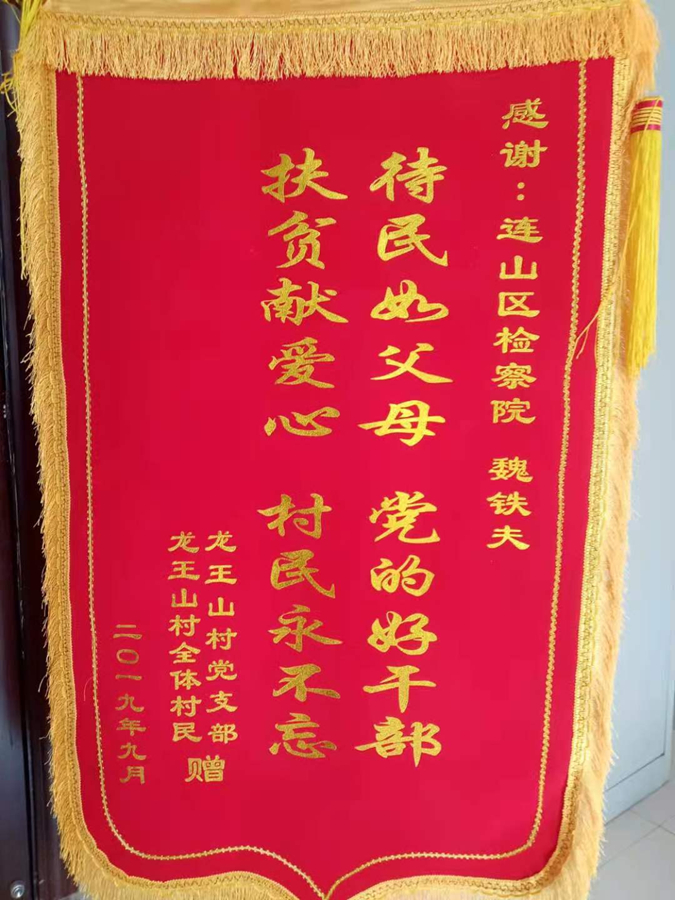 感谢：连山区检察院 魏铁夫
待民如父母 党的好干部
扶贫献爱心 村民永不忘
龙王山村党支部
龙王山村全体村民
赠
二〇一九年九月